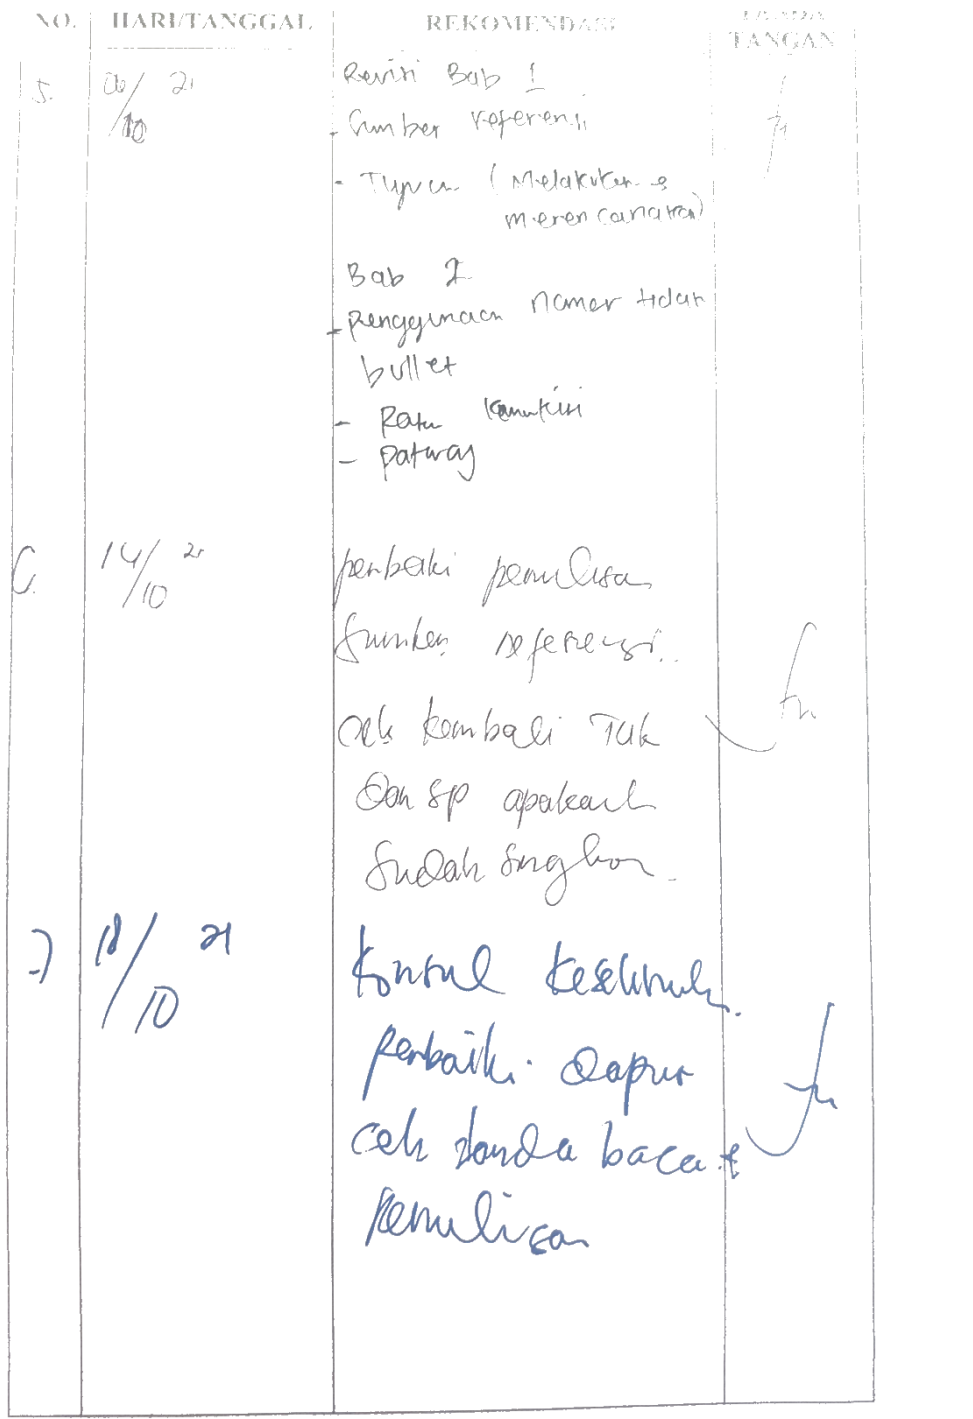 NO. HARI/TANGGAL REKOMENDASI TANDA
TANGAN
5. 06/10 21 Revisi Bab 1
- Sumber referensi
- Tujuan (Melakukan e
merencanakan)
Bab 2
- penggunaan nomer tidak
bullet
- Ratu
- patway
6. 14/10 21 perbaiki penulisan
Sumber referensi..
cek kembali TUK
Dan SP apakah
Sudah Singkron
7 18/10 21 Konsul keseluruh.
perbaiki Dapus
cek tanda baca +
Penulisan